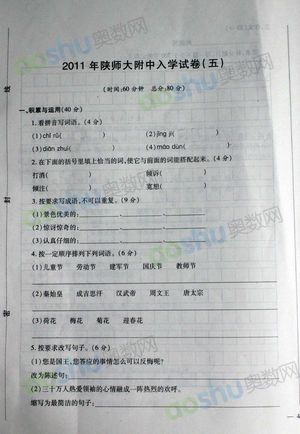 2011年陕师大附中入学试卷(五)
(时间:60分钟 总分:80分)
一、积累与运用(40分)
1.看拼音写词语。(4分)
(1)chǐ rǔ( ) (2)jīng jí( )
(3)diān zhuì( ) (4)máo dùn( )
2.在下面的括号里填上恰当的词,使它与前面的词能搭配起来。(4分)
打消( ) 倾诉( )
倾注( ) 宽恕( )
3.按要求写成语,不可以重复。(9分)
(1)景色优美的:
(2)惊讶惊奇的:
(3)认真仔细的:
4.按一定顺序排列下列词语。(6分)
(1)儿童节 劳动节 建军节 国庆节 教师节
(2)秦始皇 成吉思汗 汉武帝 周文王 唐太宗
(3)荷花 梅花 菊花 迎春花
5.按要求改写句子。(6分)
(1)您是国王,您答应的事情怎么可以反悔呢?
改为陈述句:
(2)三十万人热爱领袖的心情融成一阵热烈的欢呼。
缩写为最简洁的句子:
线
封
密
aoshu奥数网
— 4